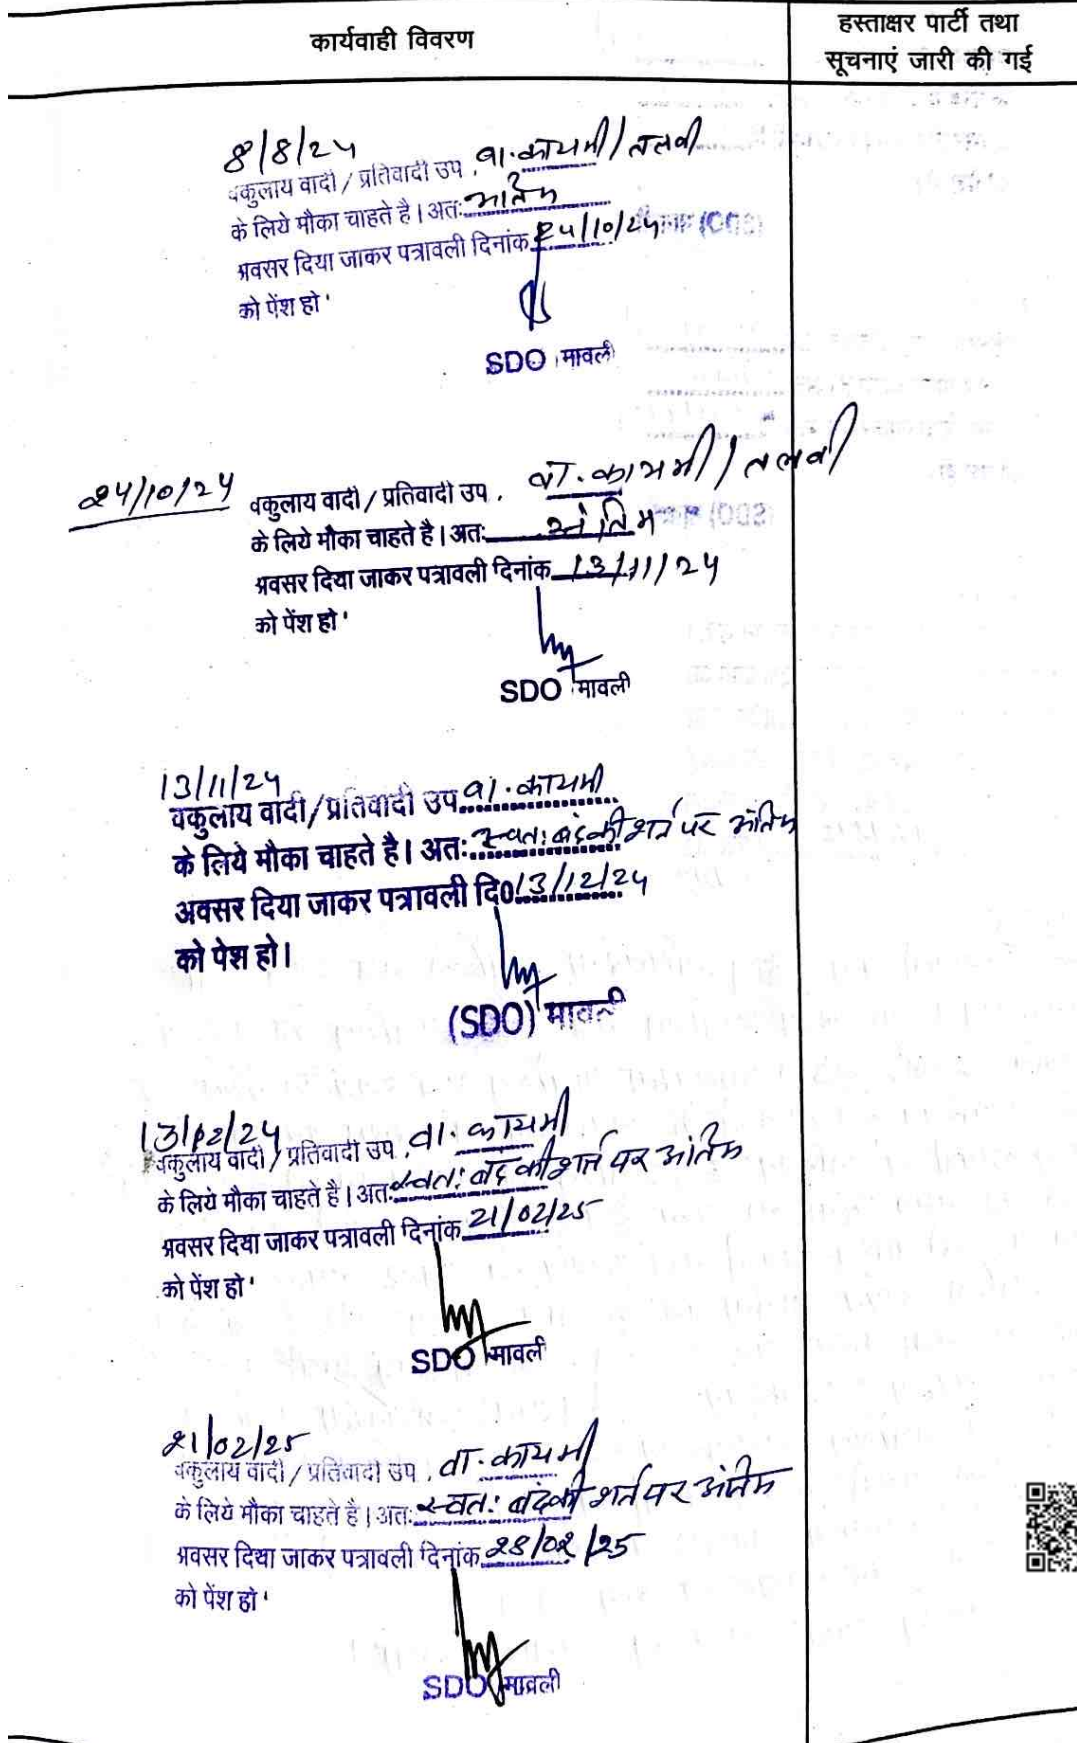 कार्यवाही विवरण
हस्ताक्षर पार्टी तथा
सूचनाएं जारी की गई
8/8/24
वकुलाय वादी / प्रतिवादी उप. वा. कायमी / तलवी
के लिये मौका चाहते है। अतः
अवसर दिया जाकर पत्रावली दिनांक 24/10/24
को पेंश हो
SDO मावली
24/10/24
वकुलाय वादी / प्रतिवादी उप. वा. कायमी / तलवी
के लिये मौका चाहते है। अतः अंतिम
अवसर दिया जाकर पत्रावली दिनांक 13/11/24
को पेंश हो
SDO मावली
13/11/24
वकुलाय वादी/प्रतिवादी उप वा. कायमी
के लिये मौका चाहते है। अतः स्वतः बंद की शर्त पर अंतिम
अवसर दिया जाकर पत्रावली दि0 13/12/24
को पेश हो।
(SDO) मावली
13/12/24
वकुलाय वादी / प्रतिवादी उप. वा. कायमी
के लिये मौका चाहते है। अतः स्वतः बंद की शर्त पर अंतिम
अवसर दिया जाकर पत्रावली दिनांक 21/02/25
को पेंश हो
SDO मावली
21/02/25
वकुलाय वादी / प्रतिवादी उप. वा. कायमी
के लिये मौका चाहते है। अतः स्वतः बंद की शर्त पर अंतिम
अवसर दिया जाकर पत्रावली दिनांक 28/02/25
को पेंश हो
SDO मावली